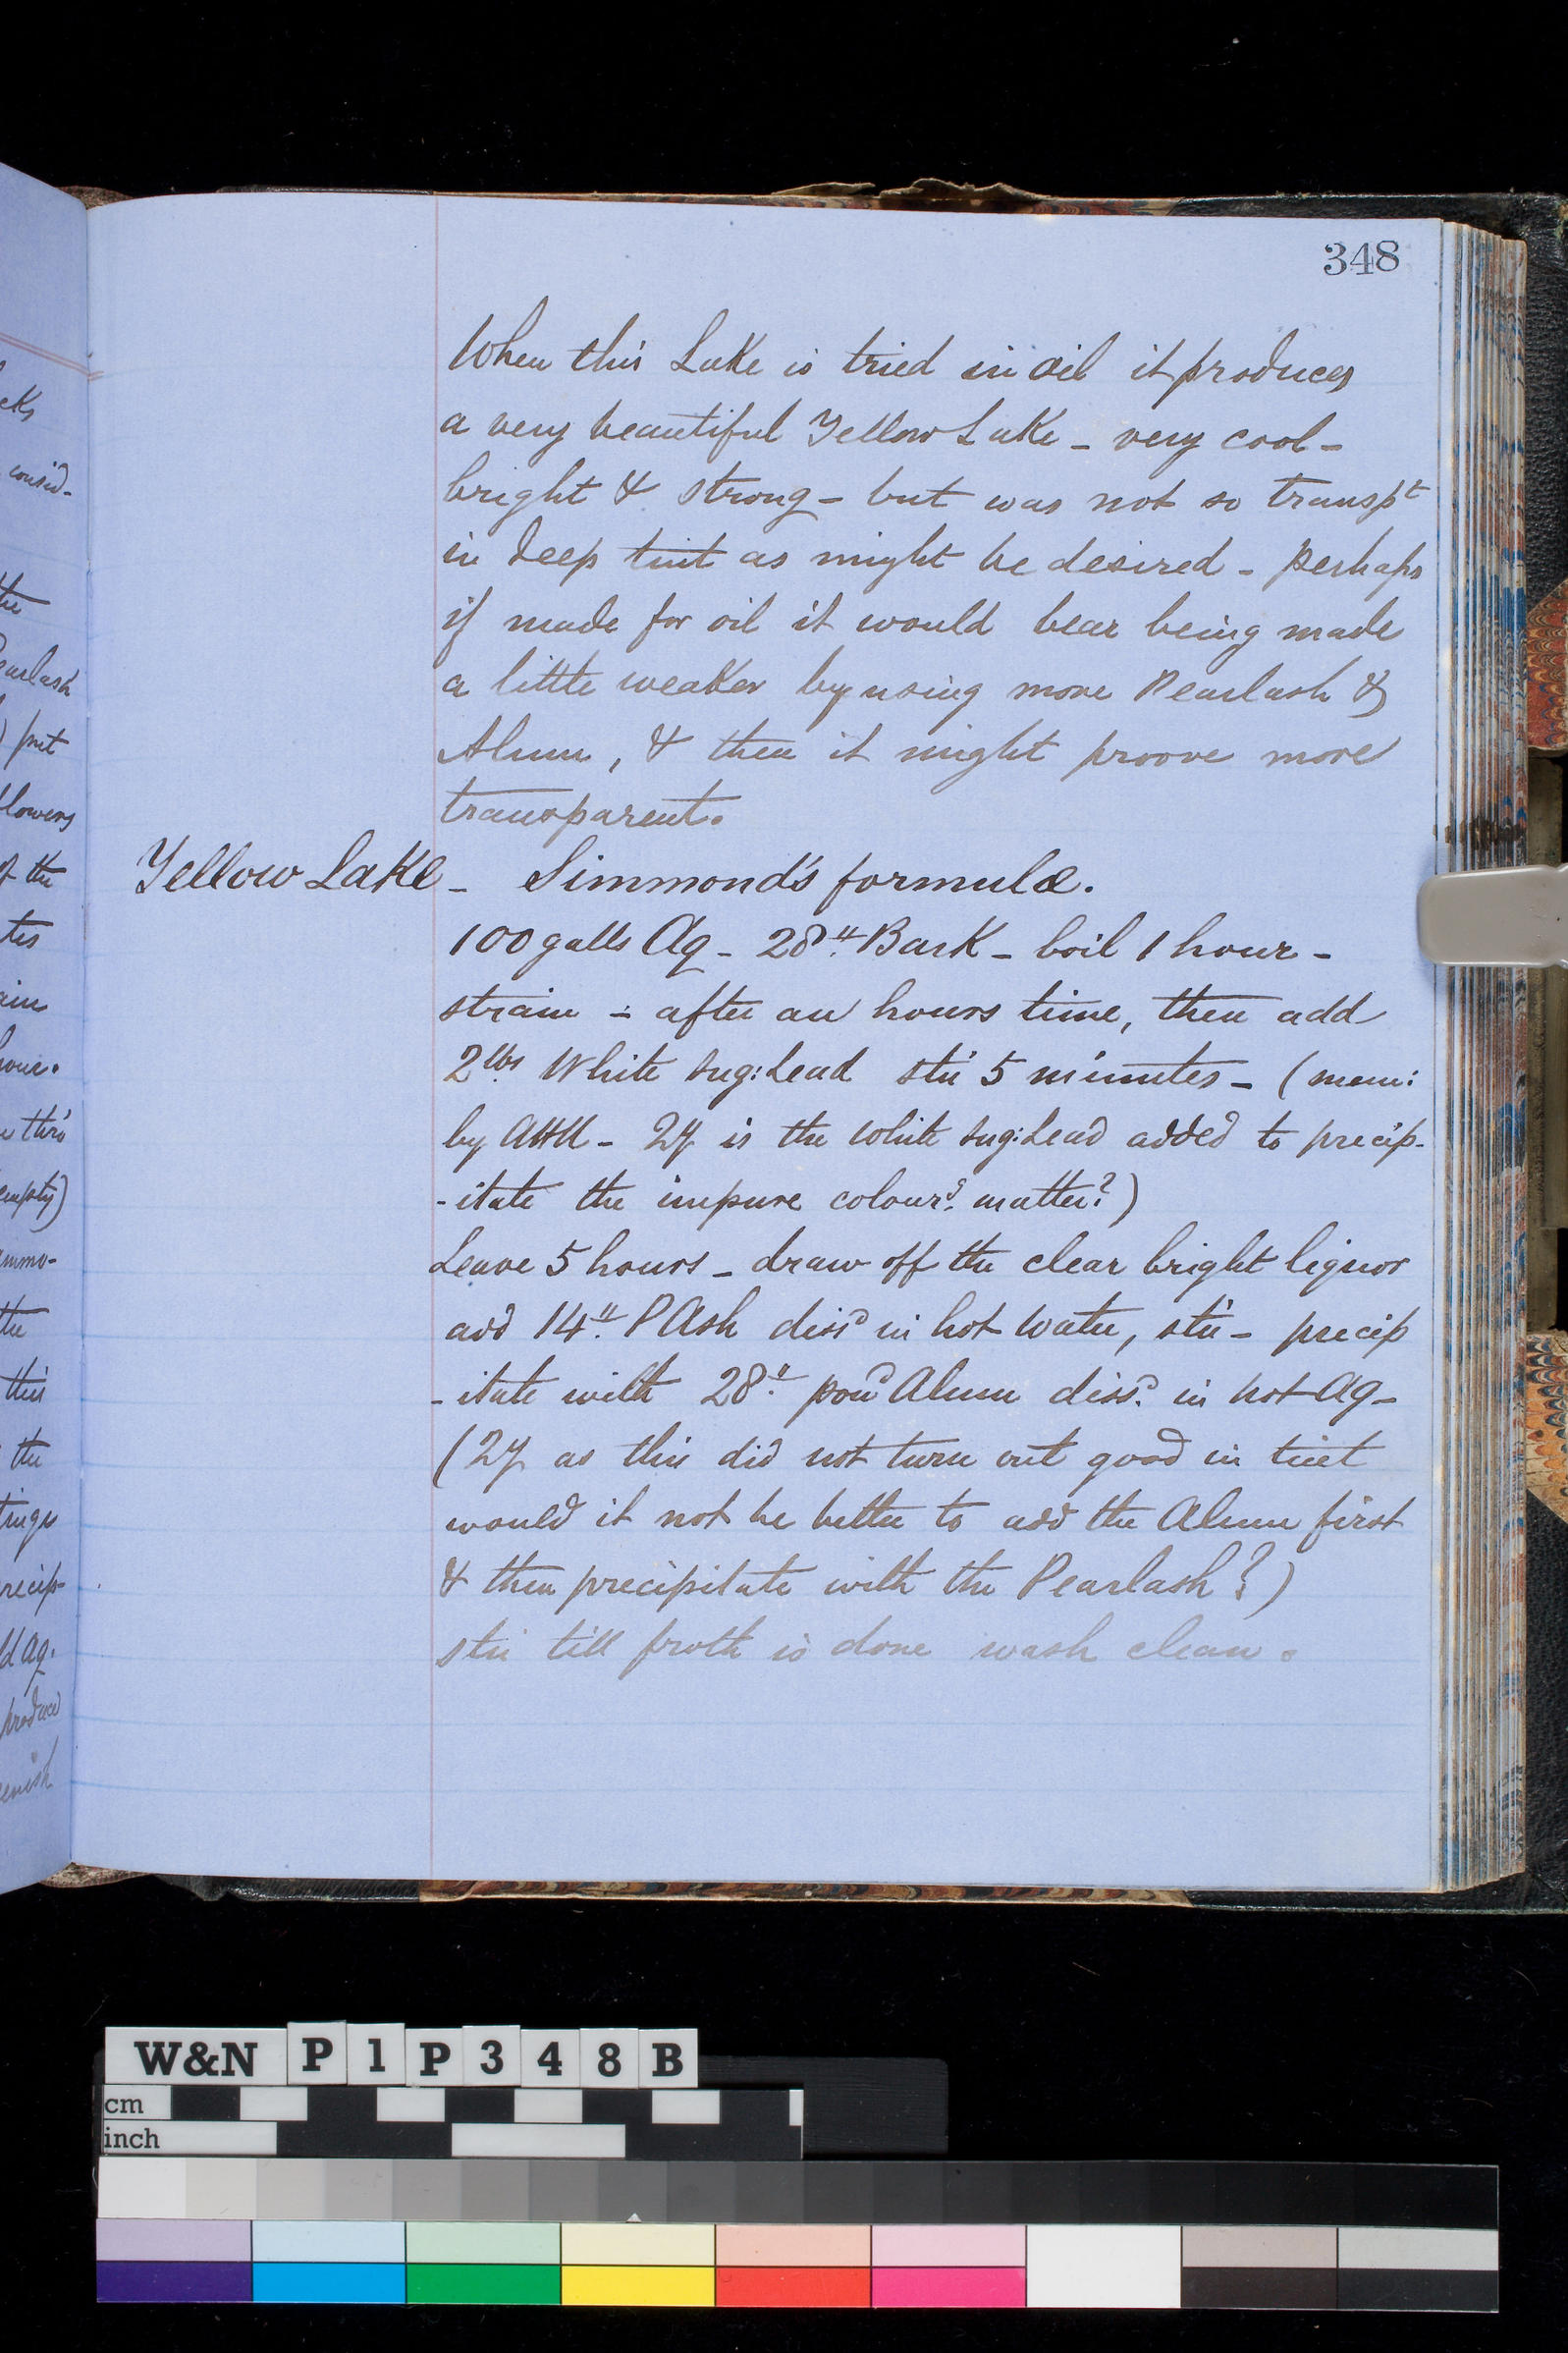 348
When this Lake is tried in oil it produces
a very beautiful Yellow Lake - very cool -
bright & strong - but was not so transpt
in deep tint as might be desired - perhaps
if made for oil it would bear being made
a little weaker by using more Pearlash &
Alum, & then it might proove more
transparent.
Yellow Lake - Simmond's formulæ.
100 galls Aq - 28 lb. Bark - boil 1 hour -
strain - after an hours time, then add
2 lbs White Sug: Lead stir 5 minutes - (mem:
by - Qy is the White Sug: Lead added to precip-
-itate the impure colourg. matter?)
Leave 5 hours - draw off the clear bright liquor
add 14 lb. PAsh dissd in hot water, stir - precip
-itate with 28 lb. powd Alum dissd. in hot Aq -
(Qy as this did not turn out good in tint
would it not be better to add the Alum first
& then precipitate with the Pearlash?)
stir till froth is done wash clean.
cks
consid-
the
Pearlash
) put
flowers
of the
hour.
thro'
empty)
the
this
the
precip-
Aq.
produced
W&N P1P348B
cm
inch